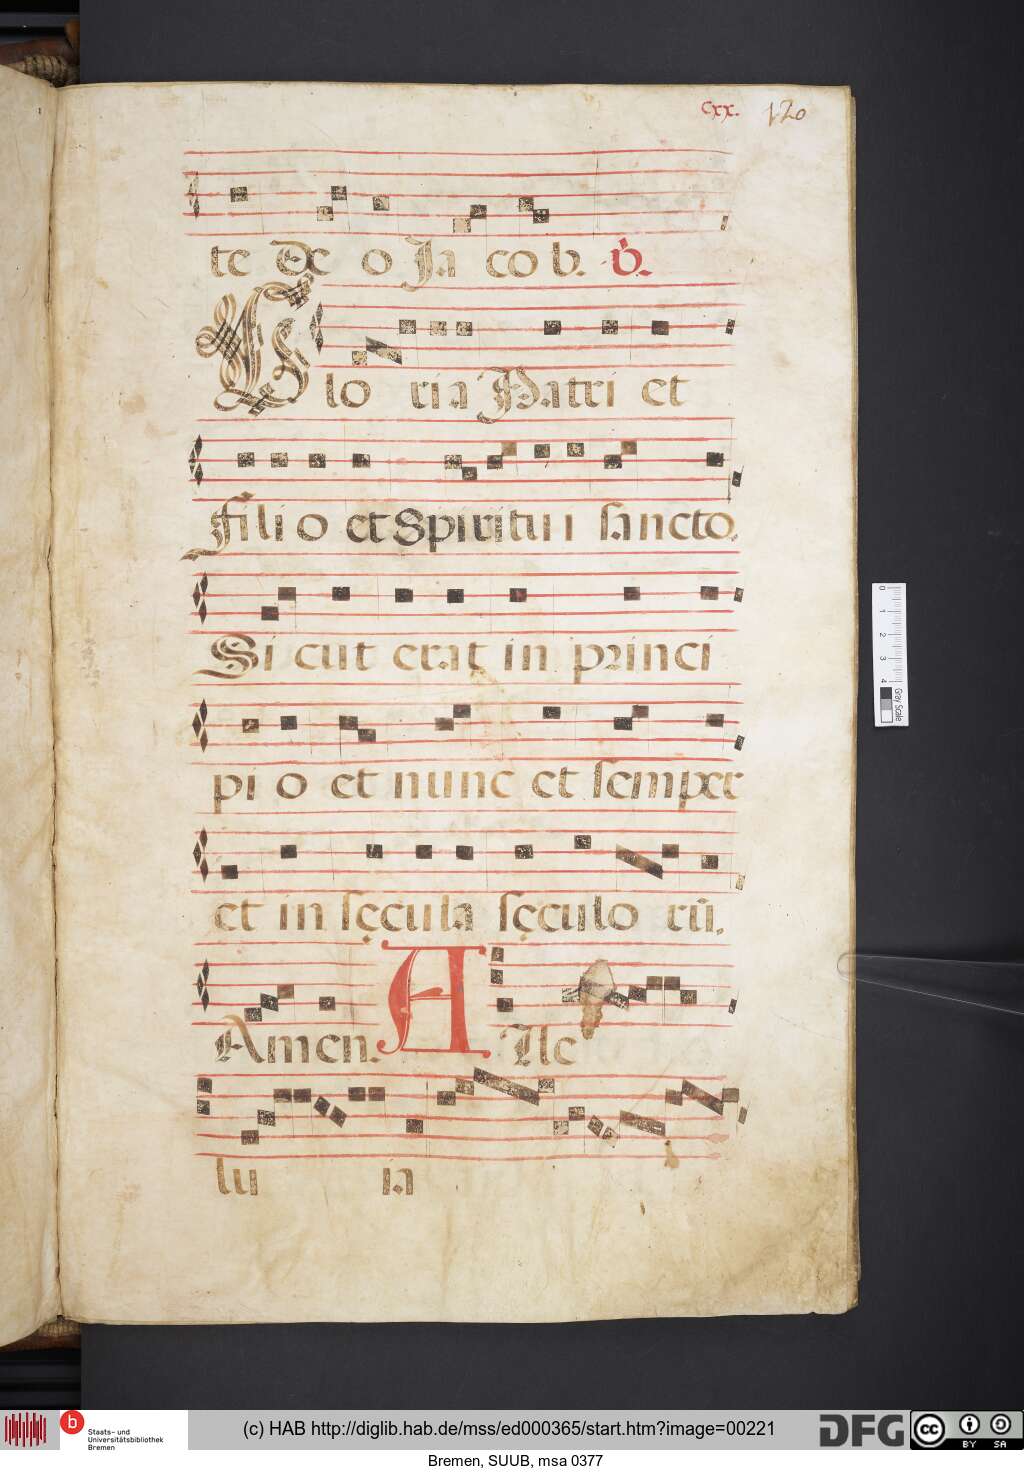 cxx. 120
te De o Ja cob. ℣.
Glo ria Patri et
Fili o et Spiritui sancto.
Si cut erat in princi
pi o et nunc et semper
et in sęcula sęculo rū.
Amen. A lle
lu ia
0 1 2 3 4 Grey Scale
b Staats- und Universitätsbibliothek Bremen
(c) HAB http://diglib.hab.de/mss/ed000365/start.htm?image=00221
DFG cc BY SA
Bremen, SUUB, msa 0377